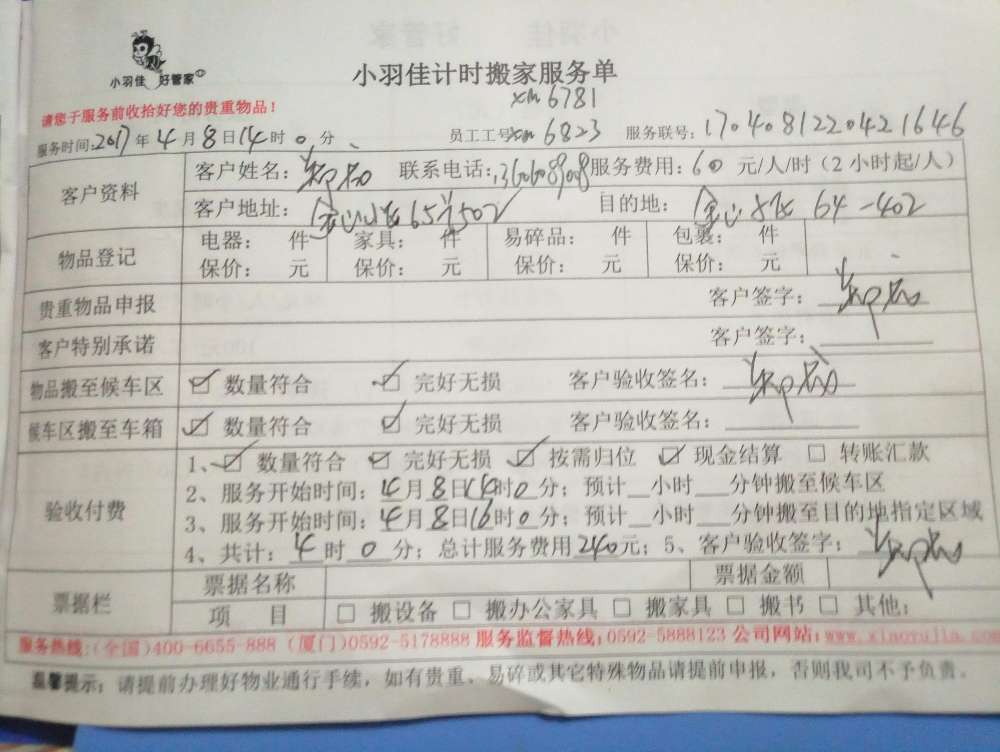 小羽佳 好管家
小羽佳计时搬家服务单
请您于服务前收拾好您的贵重物品！
xm 6781
服务时间:2017年4月8日14时0分 员工工号:xm 6823 服务联号:1704081220421646
客户资料
客户姓名: 联系电话: 服务费用:60元/人/时（2小时起/人）
客户地址: 65号502 目的地: 64-402
物品登记
电器: 件 家具: 件 易碎品: 件 包裹: 件
保价: 元 保价: 元 保价: 元 保价: 元
贵重物品申报 客户签字:
客户特别承诺 客户签字:
物品搬至候车区 ☑ 数量符合 ☑ 完好无损 客户验收签名:
候车区搬至车箱 ☑ 数量符合 ☑ 完好无损 客户验收签名:
验收付费
1、☑ 数量符合 ☑ 完好无损 ☑ 按需归位 ☑ 现金结算 □ 转账汇款
2、服务开始时间:4月8日14时0分;预计__小时__分钟搬至候车区
3、服务开始时间:4月8日16时0分;预计__小时__分钟搬至目的地指定区域
4、共计:4时0分;总计服务费用240元;5、客户验收签字:
票据栏
票据名称 票据金额
项 目 □ 搬设备 □ 搬办公家具 □ 搬家具 □ 搬书 □ 其他:
服务热线:(全国)400-6655-888 (厦门)0592-5178888 服务监督热线:0592-5888123 公司网站:www.xiaoyujia.com
温馨提示: 请提前办理好物业通行手续，如有贵重、易碎或其它特殊物品请提前申报，否则我司不予负责。